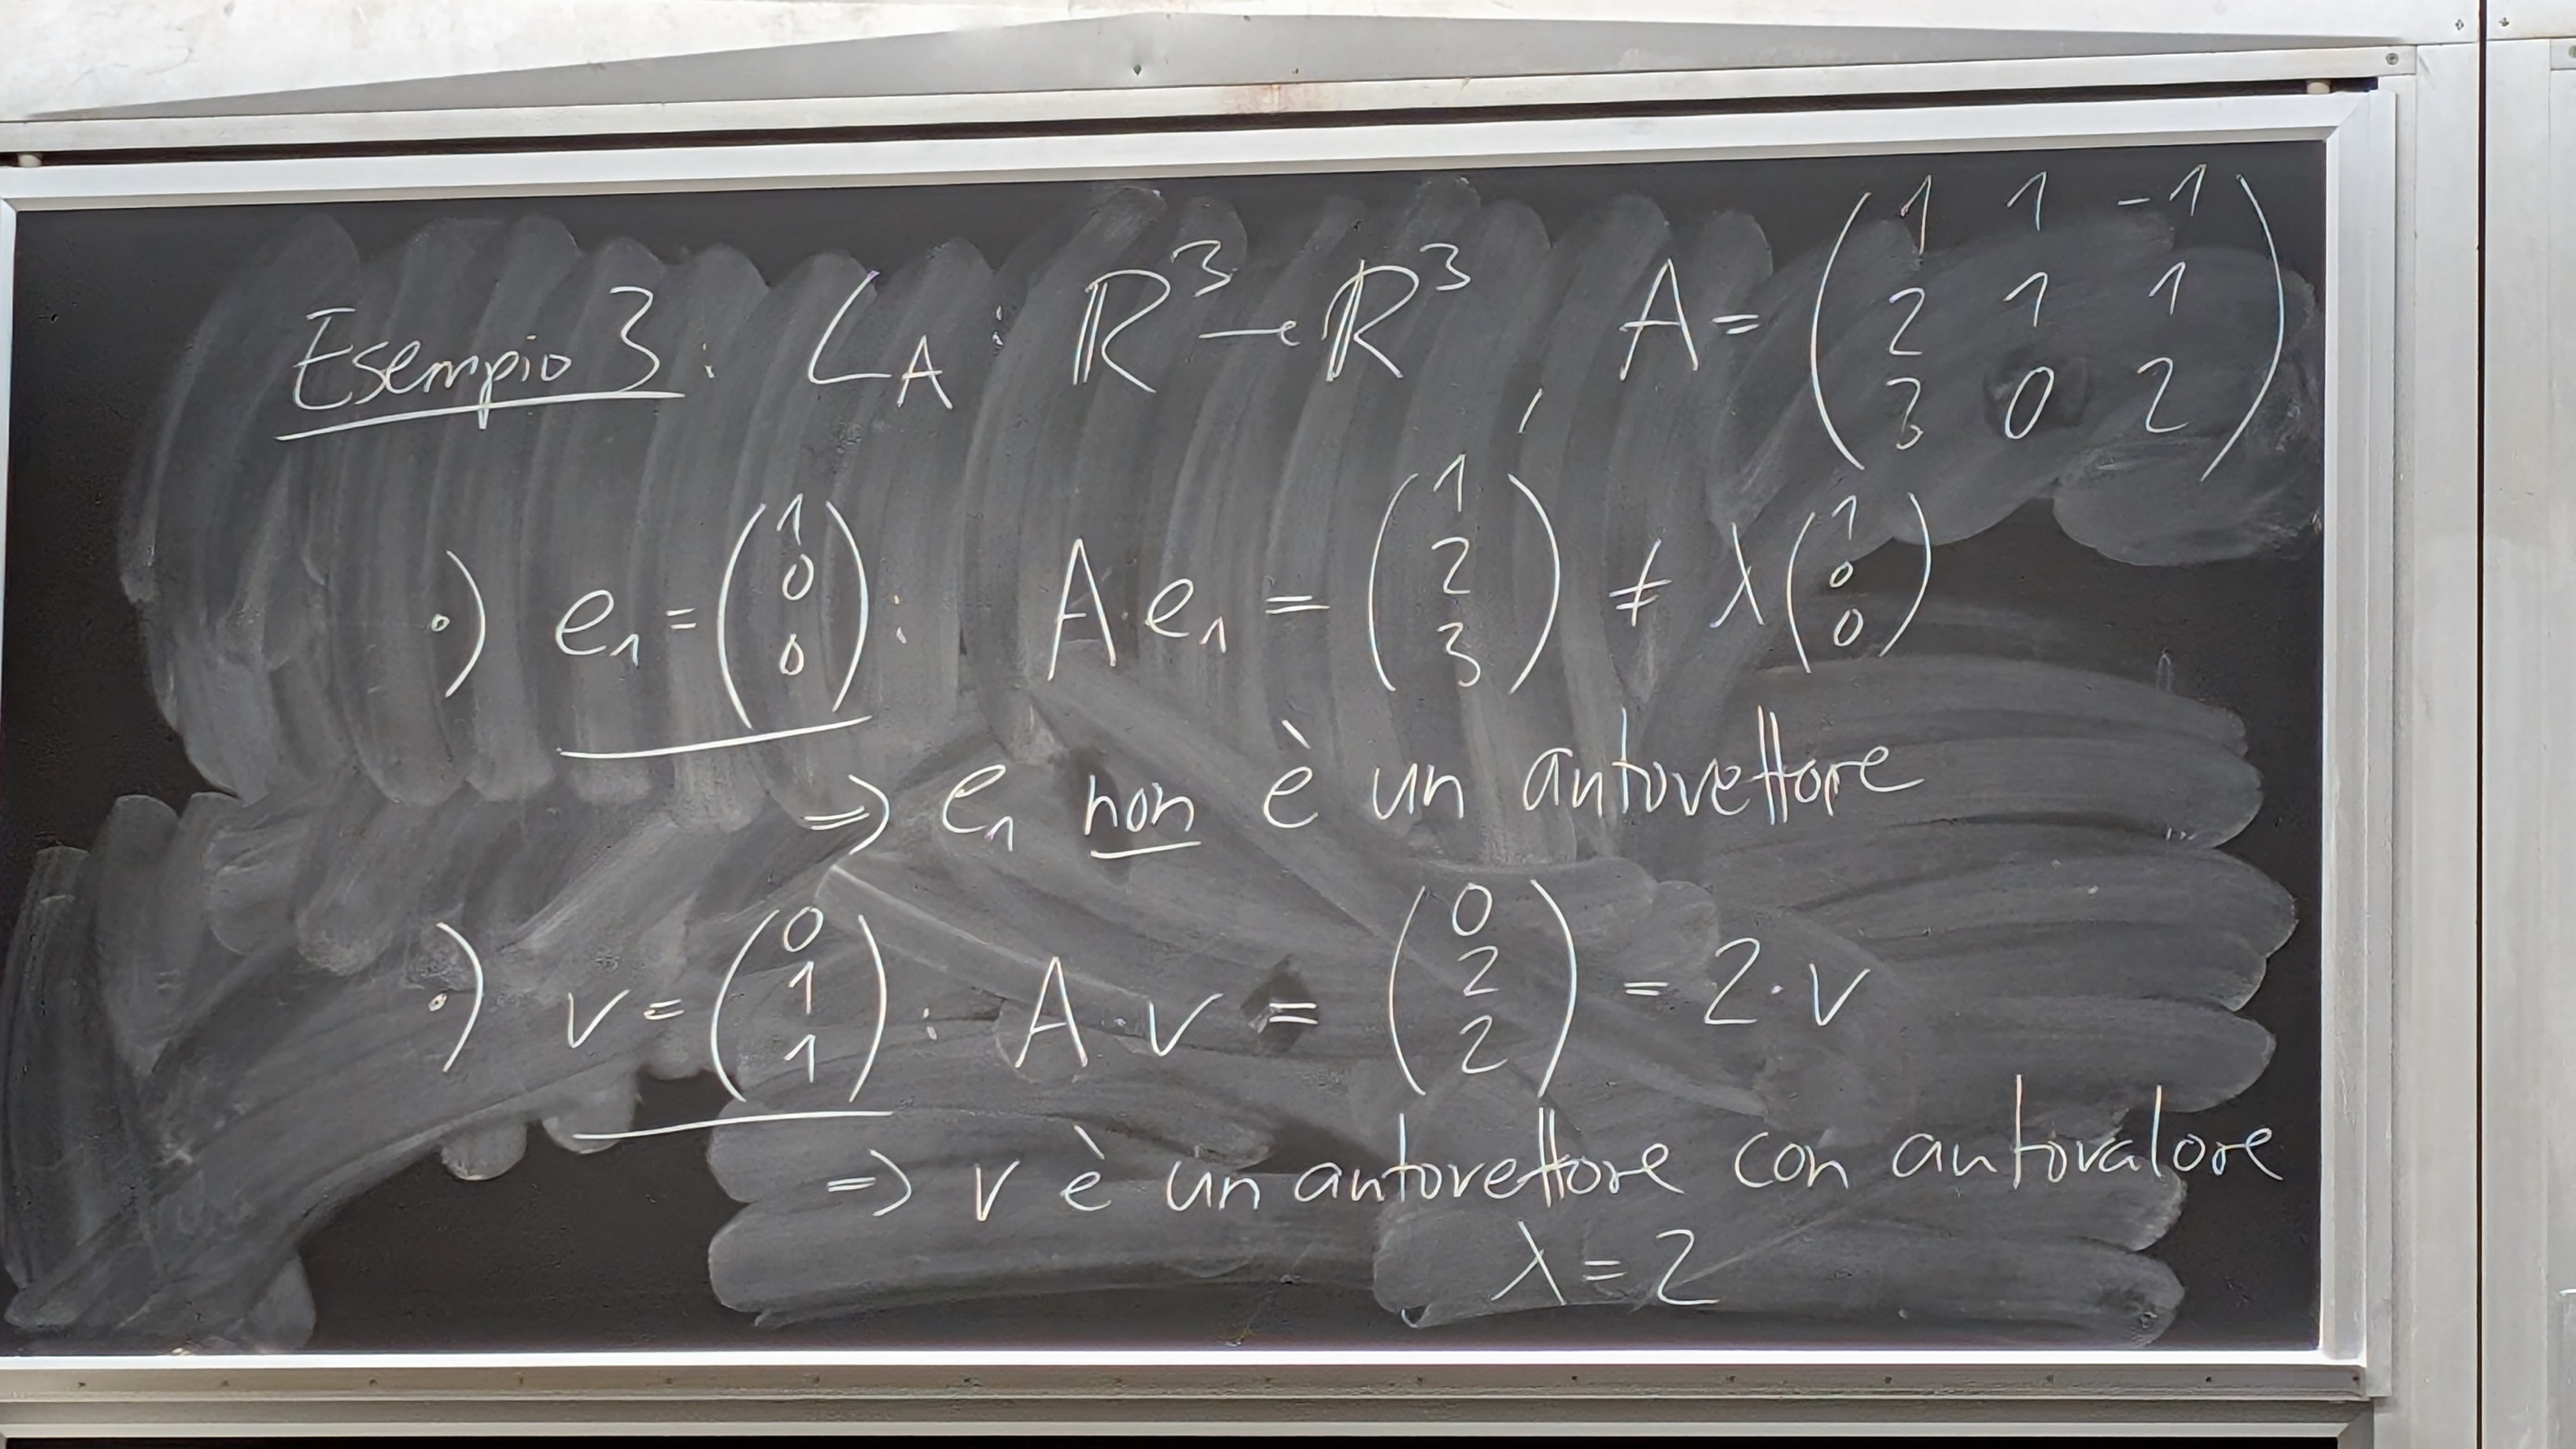 Esempio 3: L_A: ℝ³ → ℝ³, A = \begin{pmatrix} 1 & 1 & -1 \\ 2 & 1 & 1 \\ 3 & 0 & 2 \end{pmatrix}
·) e₁ = \begin{pmatrix} 1 \\ 0 \\ 0 \end{pmatrix}: A·e₁ = \begin{pmatrix} 1 \\ 2 \\ 3 \end{pmatrix} ≠ λ \begin{pmatrix} 1 \\ 0 \\ 0 \end{pmatrix}
⇒ e₁ non è un autovettore
·) v = \begin{pmatrix} 0 \\ 1 \\ 1 \end{pmatrix}: A·v = \begin{pmatrix} 0 \\ 2 \\ 2 \end{pmatrix} = 2·v
⇒ v è un autovettore con autovalore
λ = 2